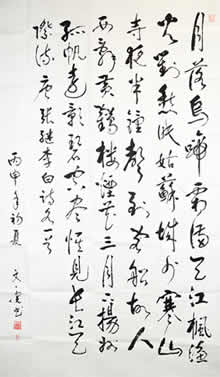 月落烏啼霜滿天江楓漁
火對愁眠姑蘇城外寒山
寺夜半鐘聲到客船故人
西辭黃鶴樓煙花三月下揚州
孤帆遠影碧空盡惟見長江天
際流唐張繼李白詩各一首
丙申年初夏文書